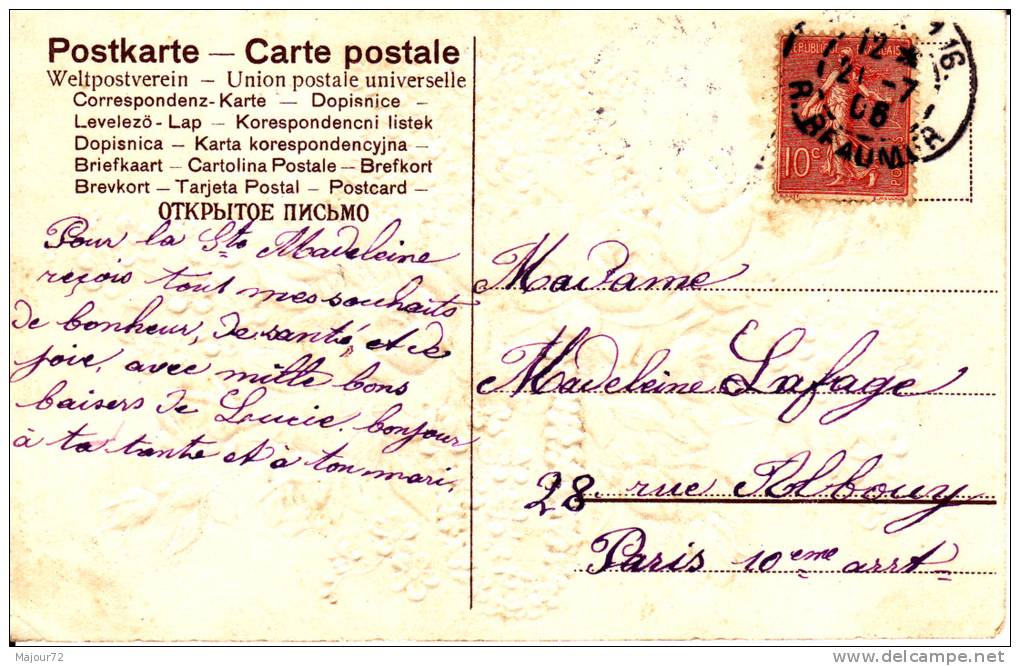 Postkarte — Carte postale
Weltpostverein — Union postale universelle
Correspondenz-Karte — Dopisnice —
Levelezö-Lap — Korespondencni listek
Dopisnica — Karta korespondencyjna —
Briefkaart — Cartolina Postale — Brefkort
Brevkort — Tarjeta Postal — Postcard —
ОТКРЫТОЕ ПИСЬМО
Pour la Ste Madeleine
reçois tout mes souhaits
de bonheur, de santé, et de
joie, avec mille bons
baisers de Lucie. bonjour
à ta tante et à ton mari.
12
16.
21 - 7
06
R. BEAUMUR
10c
Madame
Madeleine Lafage
28. rue Albouy
Paris 10eme arrt
Majour72